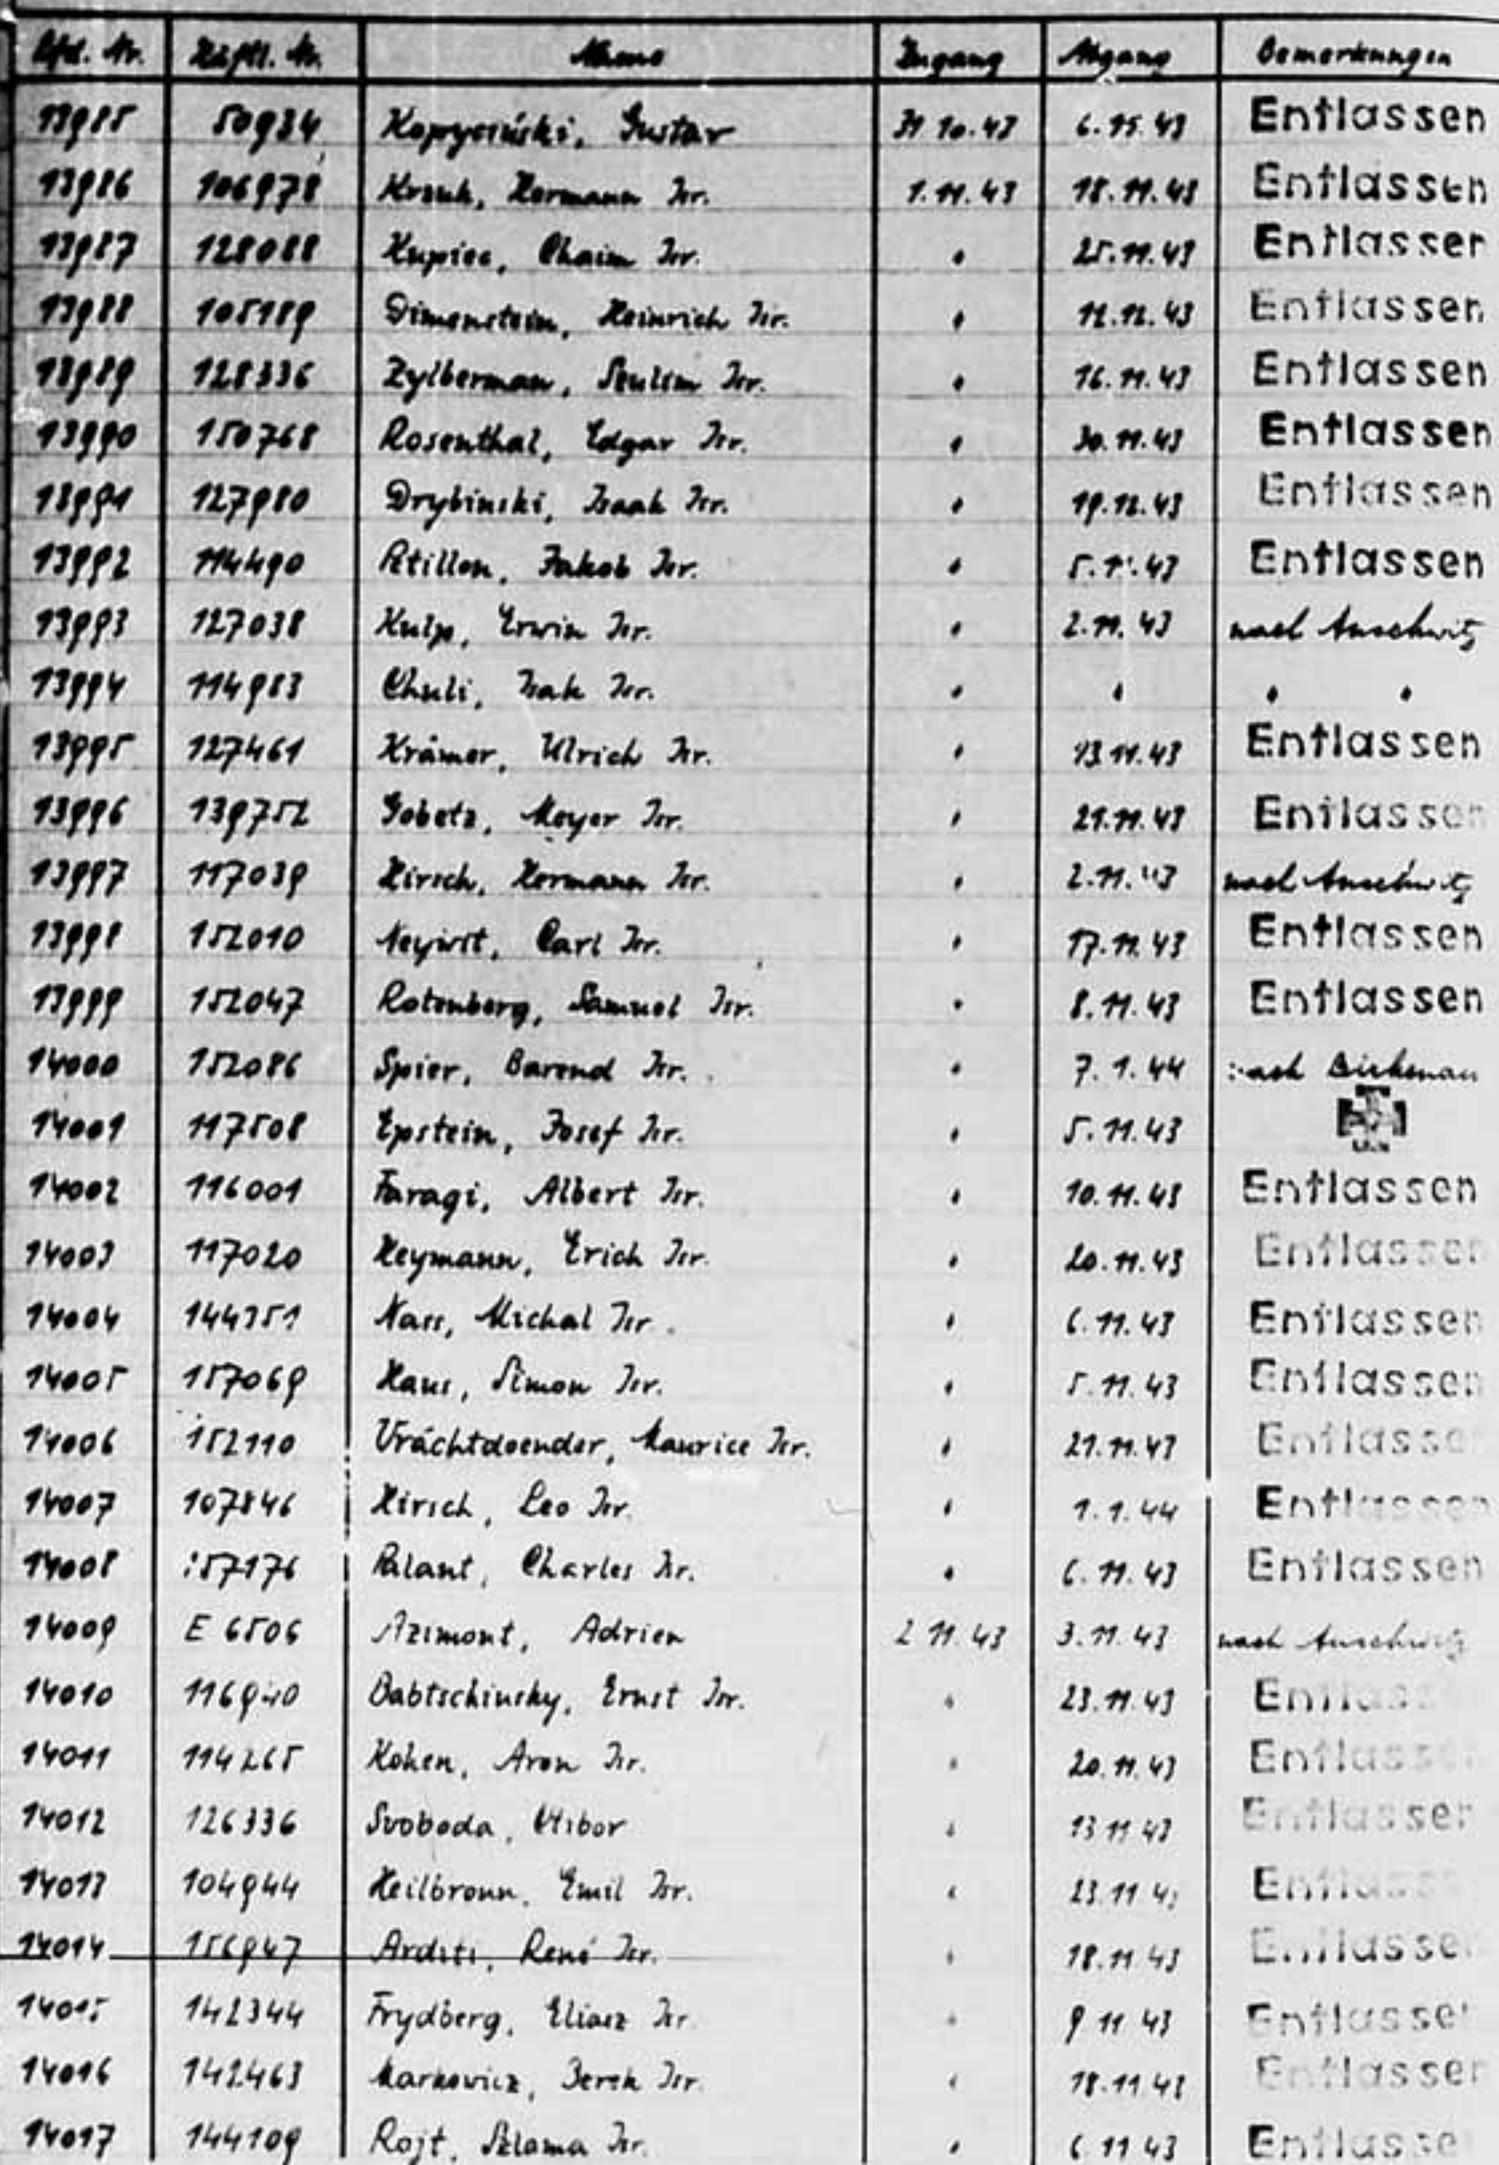 Lfd. Nr. Häftl. Nr. Name Zugang Abgang Bemerkungen
13985 50934 Kopyciński, Gustav 31.10.43 6.11.43 Entlassen
13986 106978 Hermann Isr. 1.11.43 18.11.43 Entlassen
13987 128088 Kupiec, Chaim Isr. " 25.11.43 Entlassen
13988 105189 Dimenstein, Heinrich Isr. " 12.12.43 Entlassen
13989 128336 Zylberman, Szulim Isr. " 16.11.43 Entlassen
13990 150768 Rosenthal, Edgar Isr. " 30.11.43 Entlassen
13991 127980 Drybinski, Isaak Isr. " 19.12.43 Entlassen
13992 114490 Atillon, Jakob Isr. " Entlassen
13993 127038 Kulp, Erwin Isr. " 2.11.43 nach Auschwitz
13994 114983 Chuli, Isak Isr. " " " "
13995 127461 Krämer, Ulrich Isr. " 13.11.43 Entlassen
13996 139752 Gobetz, Meyer Isr. " 21.11.43 Entlassen
13997 117039 Hirsch, Hermann Isr. " 2.11.43 nach Auschwitz
13998 152010 Carl Isr. " 17.11.43 Entlassen
13999 152047 Rotenberg, Samuel Isr. " 8.11.43 Entlassen
14000 152086 Spier, Barend Isr. " 7.1.44 nach Birkenau
14001 117508 Epstein, Josef Isr. " 5.11.43
14002 116001 Faragi, Albert Isr. " 10.11.43 Entlassen
14003 117020 Heymann, Erich Isr. " 20.11.43 Entlassen
14004 144351 Nass, Michal Isr. " 6.11.43 Entlassen
14005 157069 Haus, Simon Isr. " 5.11.43 Entlassen
14006 152110 Vrachtdoender, Maurice Isr. " 21.11.43 Entlassen
14007 107846 Hirsch, Leo Isr. " 1.1.44 Entlassen
14008 157176 Palant, Charles Isr. " 6.11.43 Entlassen
14009 E 6506 Azimont, Adrien 2.11.43 3.11.43 nach Auschwitz
14010 116940 Babtschinsky, Ernst Isr. " 23.11.43 Entlassen
14011 114265 Kohen, Aron Isr. " 20.11.43 Entlassen
14012 126336 Svoboda, Ctibor " 13.11.43 Entlassen
14013 104944 Heilbronn, Emil Isr. " 23.11.43 Entlassen
14014 156947 Arditi, René Isr. " 18.11.43 Entlassen
14015 142344 Frydberg, Eliasz Isr. " 9.11.43 Entlassen
14016 142463 Markowicz, Berek Isr. " 18.11.43 Entlassen
14017 144109 Rojt, Szlama Isr. " 6.11.43 Entlassen